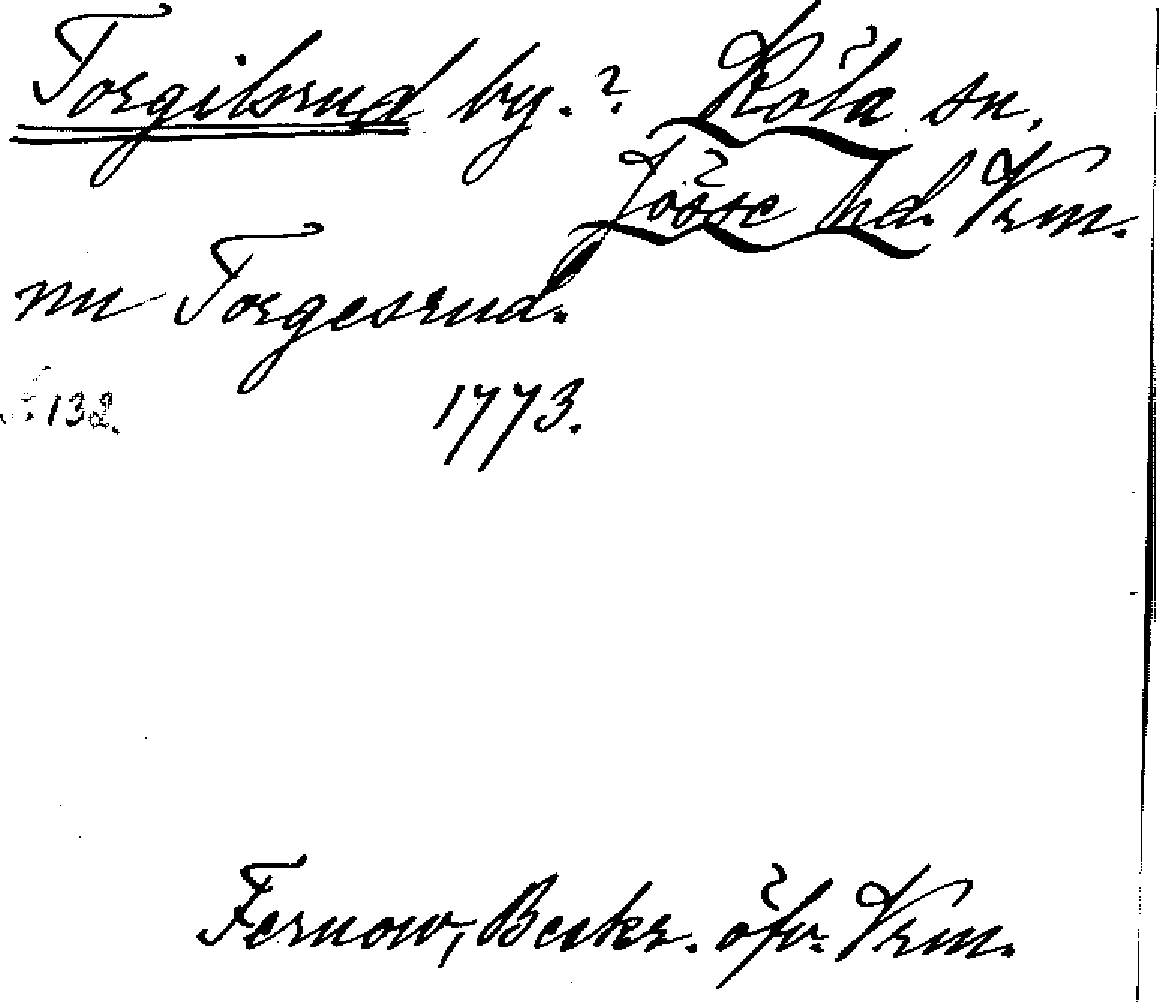 Torgilsrud by. ? Köla sn.
Jösse hd. Vrm.
nu Torgesrud.
s. 132. 1773.
Fernow, Beskr. öfv. Vrm.